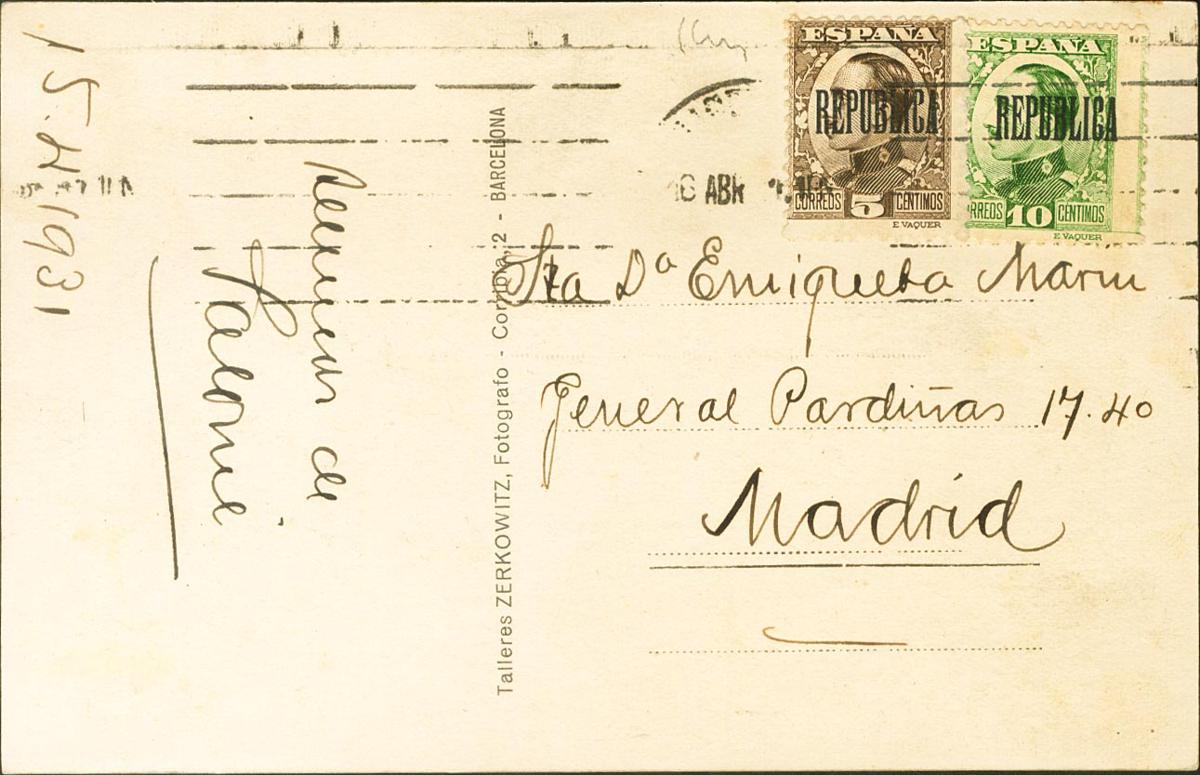 ESPAÑA
REPUBLICA
CORREOS 5 CÉNTIMOS
E. VAQUER
ESPAÑA
REPUBLICA
CORREOS 10 CÉNTIMOS
E. VAQUER
16 ABR
Sta Dª Enriqueta Marin
General Pardiñas 17. 4º
Madrid
Talleres ZERKOWITZ, Fotografo - Corribia, 2 - BARCELONA
15-4-1931
de